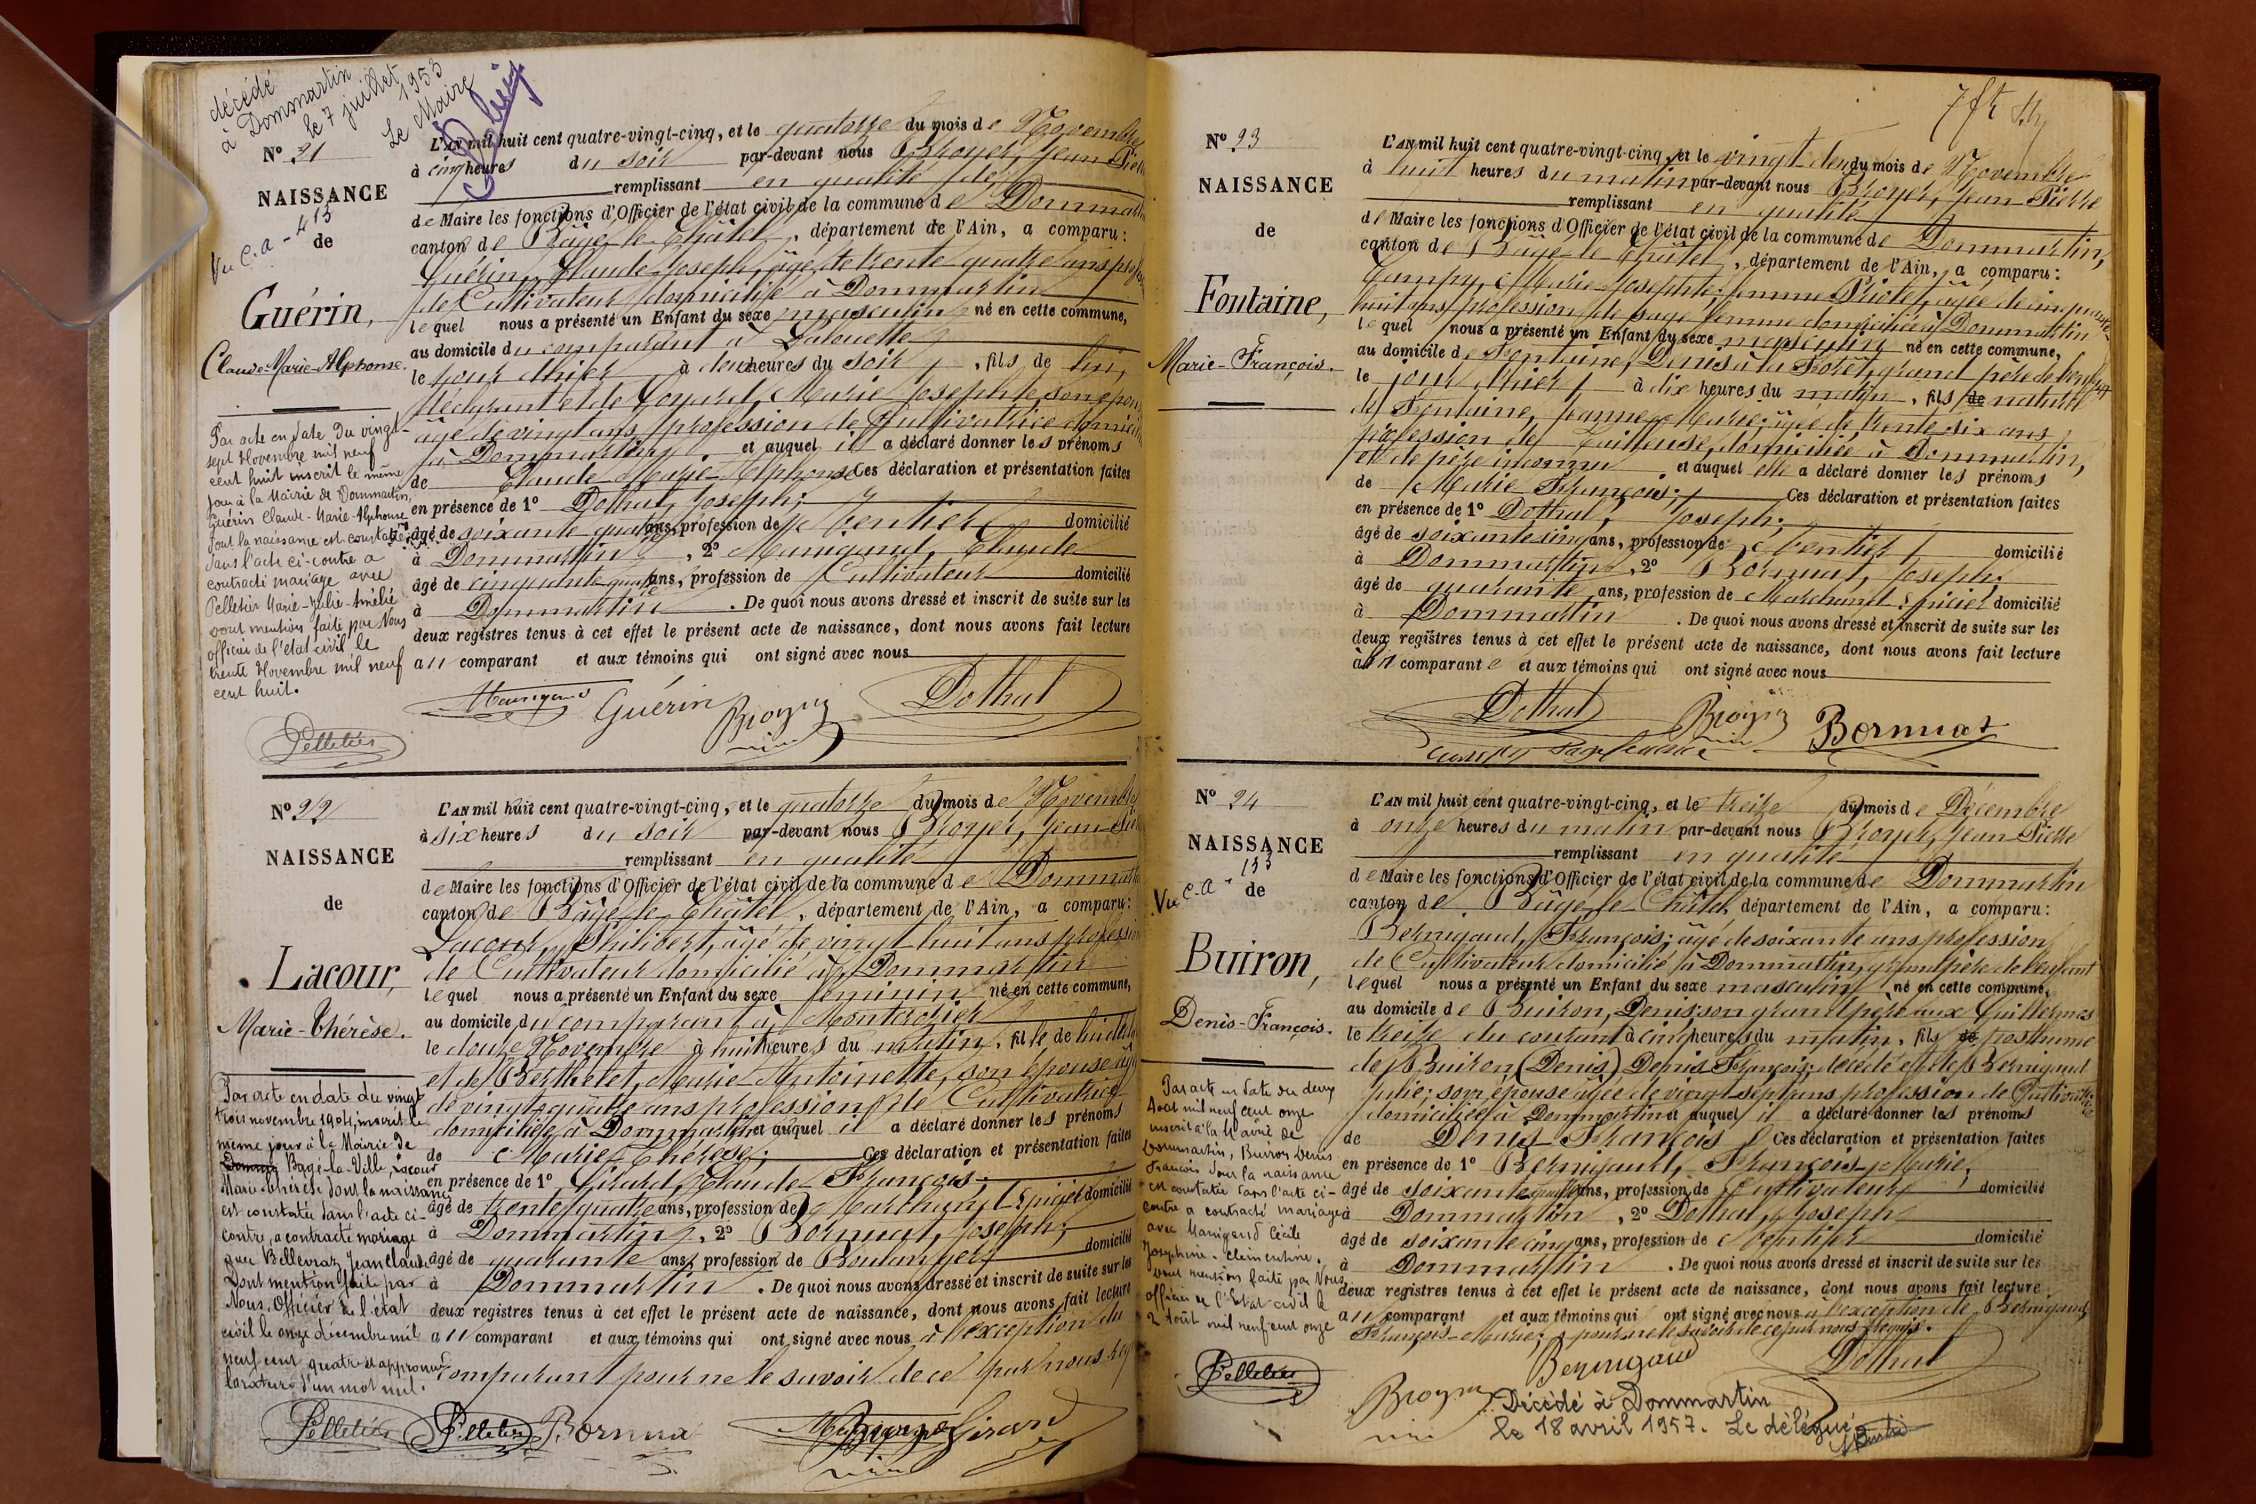 décédé
à Dommartin
le 7 juillet
1953
Le Maire
N° 21
NAISSANCE
Vu C.a - 413
de
Guérin,
Claude-Marie-Alphonse.
L'AN mil huit cent quatre-vingt-cinq, et le quatorze du mois de Novembre
à cinq heures du soir par-devant nous Broyer, Jean
remplissant en qualité de
de Maire les fonctions d'Officier de l'état civil de la commune de
canton de Bâgé-le-Châtel, département de l'Ain, a comparu:
Guérin, Claude-Joseph, âgé de trente quatre ans
de Cultivateur domicilié à Dommartin
lequel nous a présenté un Enfant du sexe masculin né en cette commune,
au domicile du comparant à
le jour d'hier à deux heures du soir, fils de lui
déclarant et de Marie Josephte son
âgé de vingt ans profession de Cultivatrice
à Dommartin et auquel il a déclaré donner les prénoms
de Claude Marie Alphonse Ces déclaration et présentation faites
en présence de 1° Dothal, Joseph;
âgé de soixante quatre ans, profession de Rentier domicilié
à Dommartin, 2° Manigand, Claude
âgé de cinquante quatre ans, profession de Cultivateur domicilié
à Dommartin. De quoi nous avons dressé et inscrit de suite sur les
deux registres tenus à cet effet le présent acte de naissance, dont nous avons fait lecture
au comparant et aux témoins qui ont signé avec nous
Manigand Guérin Broyer Dothal
Par acte en date du vingt-
sept Novembre mil neuf
cent huit inscrit le même
jour à la Mairie de Dommartin,
Guérin Claude-Marie-Alphonse
dont la naissance est constatée
dans l'acte ci-contre a
contracté mariage avec
Pelletier Marie-Julie-Amélie
dont mention faite par Nous
officier de l'état civil, le
trente Novembre mil neuf
cent huit.
Pelletier
N° 22
NAISSANCE
de
Lacour,
Marie-Thérèse.
L'AN mil huit cent quatre-vingt-cinq, et le quatorze du mois de Novembre
à six heures du soir par-devant nous Broyer, Jean
remplissant en qualité
de Maire les fonctions d'Officier de l'état civil de la commune de
canton de Bâgé-le-Châtel, département de l'Ain, a comparu:
Lacour, Philibert, âgé de vingt huit ans profession
de Cultivateur domicilié à Dommartin
lequel nous a présenté un Enfant du sexe féminin né en cette commune,
au domicile du comparant à Montcrozier
le douze Novembre à huit heures du matin, fille de lui
et de Berthelet, Marie-Antoinette, son épouse
de vingt quatre ans profession de Cultivatrice
domiciliée à Dommartin et auquel il a déclaré donner les prénoms
de Marie Thérèse; Ces déclaration et présentation faites
en présence de 1° Girard, Claude-François;
âgé de trente quatre ans, profession de Marchand Epicier domicilié
à Dommartin, 2° Bornuat, Joseph;
âgé de quarante ans, profession de Boulanger domicilié
à Dommartin. De quoi nous avons dressé et inscrit de suite sur les
deux registres tenus à cet effet le présent acte de naissance, dont nous avons fait lecture
au comparant et aux témoins qui ont signé avec nous à l'exception du
comparant pour ne le savoir de ce par nous
Par acte en date du vingt
trois novembre 1904, inscrit le
même jour à la Mairie de
Bagé-la-Ville, Lacour
Marie-Thérèse dont la naissance
est constatée dans l'acte ci-
contre, a contracté mariage
avec Bellevraz, Jean Claude
Dont mention faite par
Nous, Officier de l'état
civil le onze décembre mil
neuf cent quatre et approuvé
la rature d'un mot nul.
Pelletier Pelletier Bornua Broyer Girard
N° 23
NAISSANCE
de
Fontaine,
Marie-François.
L'AN mil huit cent quatre-vingt-cinq, et le vingt-deux du mois de Novembre
à huit heures du matin par-devant nous Broyer, Jean Pierre
remplissant en qualité
de Maire les fonctions d'Officier de l'état civil de la commune de Dommartin,
canton de Bâgé-le-Châtel, département de l'Ain, a comparu:
Marie-Josephte; femme âgée de cinquante-
huit ans profession de sage femme domiciliée à Dommartin
lequel nous a présenté un Enfant du sexe masculin né en cette commune,
au domicile de Fontaine, Denis à la Forêt, grand père de l'enfant
le jour d'hier à dix heures du matin, fils de naturel
de Fontaine, Jeanne-Marie; âgée de trente six ans
profession de Tailleuse, domiciliée à Dommartin,
et de père inconnu et auquel elle a déclaré donner les prénoms
de Marie François; Ces déclaration et présentation faites
en présence de 1° Dothal, Joseph;
âgé de soixante cinq ans, profession de Rentier domicilié
à Dommartin, 2° Bornuat, Joseph;
âgé de quarante ans, profession de Marchand Epicier domicilié
à Dommartin. De quoi nous avons dressé et inscrit de suite sur les
deux registres tenus à cet effet le présent acte de naissance, dont nous avons fait lecture
à la comparante et aux témoins qui ont signé avec nous
Dothal Broyer Bornuat
N° 24
NAISSANCE
Vu C.a - 153
de
Buiron,
Denis-François.
L'AN mil huit cent quatre-vingt-cinq, et le treize du mois de Décembre
à onze heures du matin par-devant nous Broyer, Jean Pierre
remplissant en qualité
de Maire les fonctions d'Officier de l'état civil de la commune de Dommartin
canton de Bâgé-le-Châtel, département de l'Ain, a comparu:
Bernigaud, François; âgé de soixante ans profession
de Cultivateur domicilié à Dommartin, grand père de l'enfant
lequel nous a présenté un Enfant du sexe masculin né en cette commune,
au domicile de Buiron, Denis son grand père aux Guillermes
le treize du courant à cinq heures du matin, fils de posthume
de Buiron (Denis) Denis François; décédé et de Bernigaud
Julie; son épouse âgée de vingt-sept ans profession de Cultivatrice
domiciliée à Dommartin et auquel il a déclaré donner les prénoms
de Denis François Ces déclaration et présentation faites
en présence de 1° Bernigaud, François-Marie,
âgé de soixante quatre ans, profession de Cultivateur domicilié
à Dommartin, 2° Dothal, Joseph
âgé de soixante cinq ans, profession de Rentier domicilié
à Dommartin. De quoi nous avons dressé et inscrit de suite sur les
deux registres tenus à cet effet le présent acte de naissance, dont nous avons fait lecture
au comparant et aux témoins qui ont signé avec nous à l'exception de Bernigaud,
François-Marie; pour ne le savoir de ce par nous requis.
Par acte en date du deux
Août mil neuf cent onze
inscrit à la Mairie de
Dommartin, Buiron Denis
François dont la naissance
est constatée dans l'acte ci-
contre a contracté mariage
avec Manigand Cécile
Joséphine-Clémentine.
dont mention faite par Nous
officier de l'Etat-civil le
2 Août mil neuf cent onze
Pelletier
Broyer Bernigaud Dothal
Décédé à Dommartin
le 18 avril 1957. Le délégué